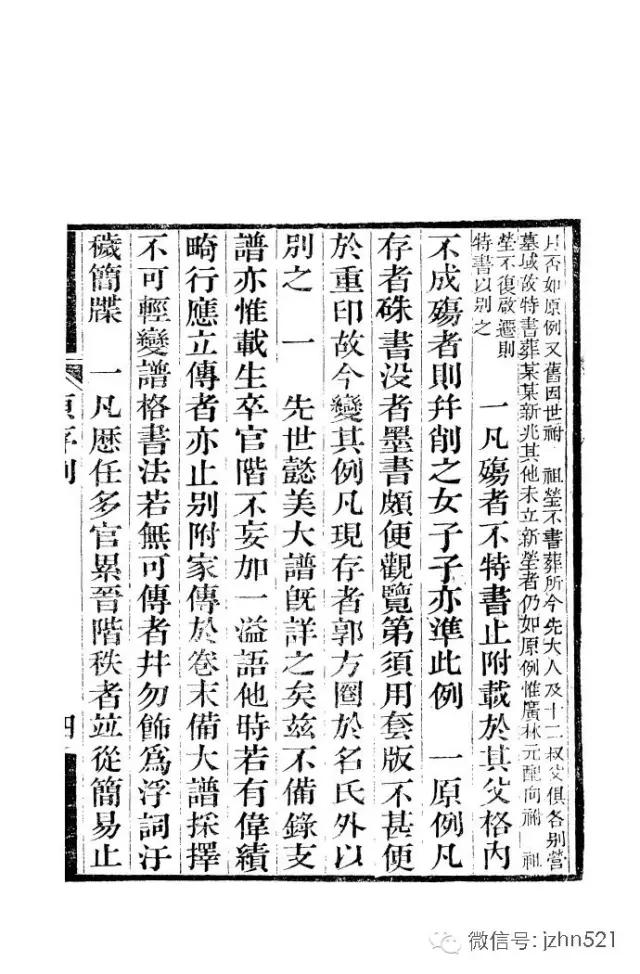 片否如原例又舊因世祔　祖塋不書葬所今先大人及十二叔父俱各別營
墓域故特書葬某某新兆其他未立新塋者仍如原例惟廣林元配向祔　祖
塋不復啟遷則
特書以別之
一凡殤者不特書止附載於其父格內
不成殤者則幷削之女子子亦準此例　一原例凡
存者硃書没者墨書頗便觀覽第須用套版不甚便
於重印故今變其例凡現存者郭方圈於名氏外以
別之　一　先世懿美大譜旣詳之矣兹不備錄支
譜亦惟載生卒官階不妄加一溢語他時若有偉績
畸行應立傳者亦止別附家傳於卷末備大譜採擇
不可輕變譜格書法若無可傳者幷勿飾爲浮詞汙
穢簡牒　一凡歷任多官累晉階秩者並從簡易止
序例
四
微信号: jzhn521